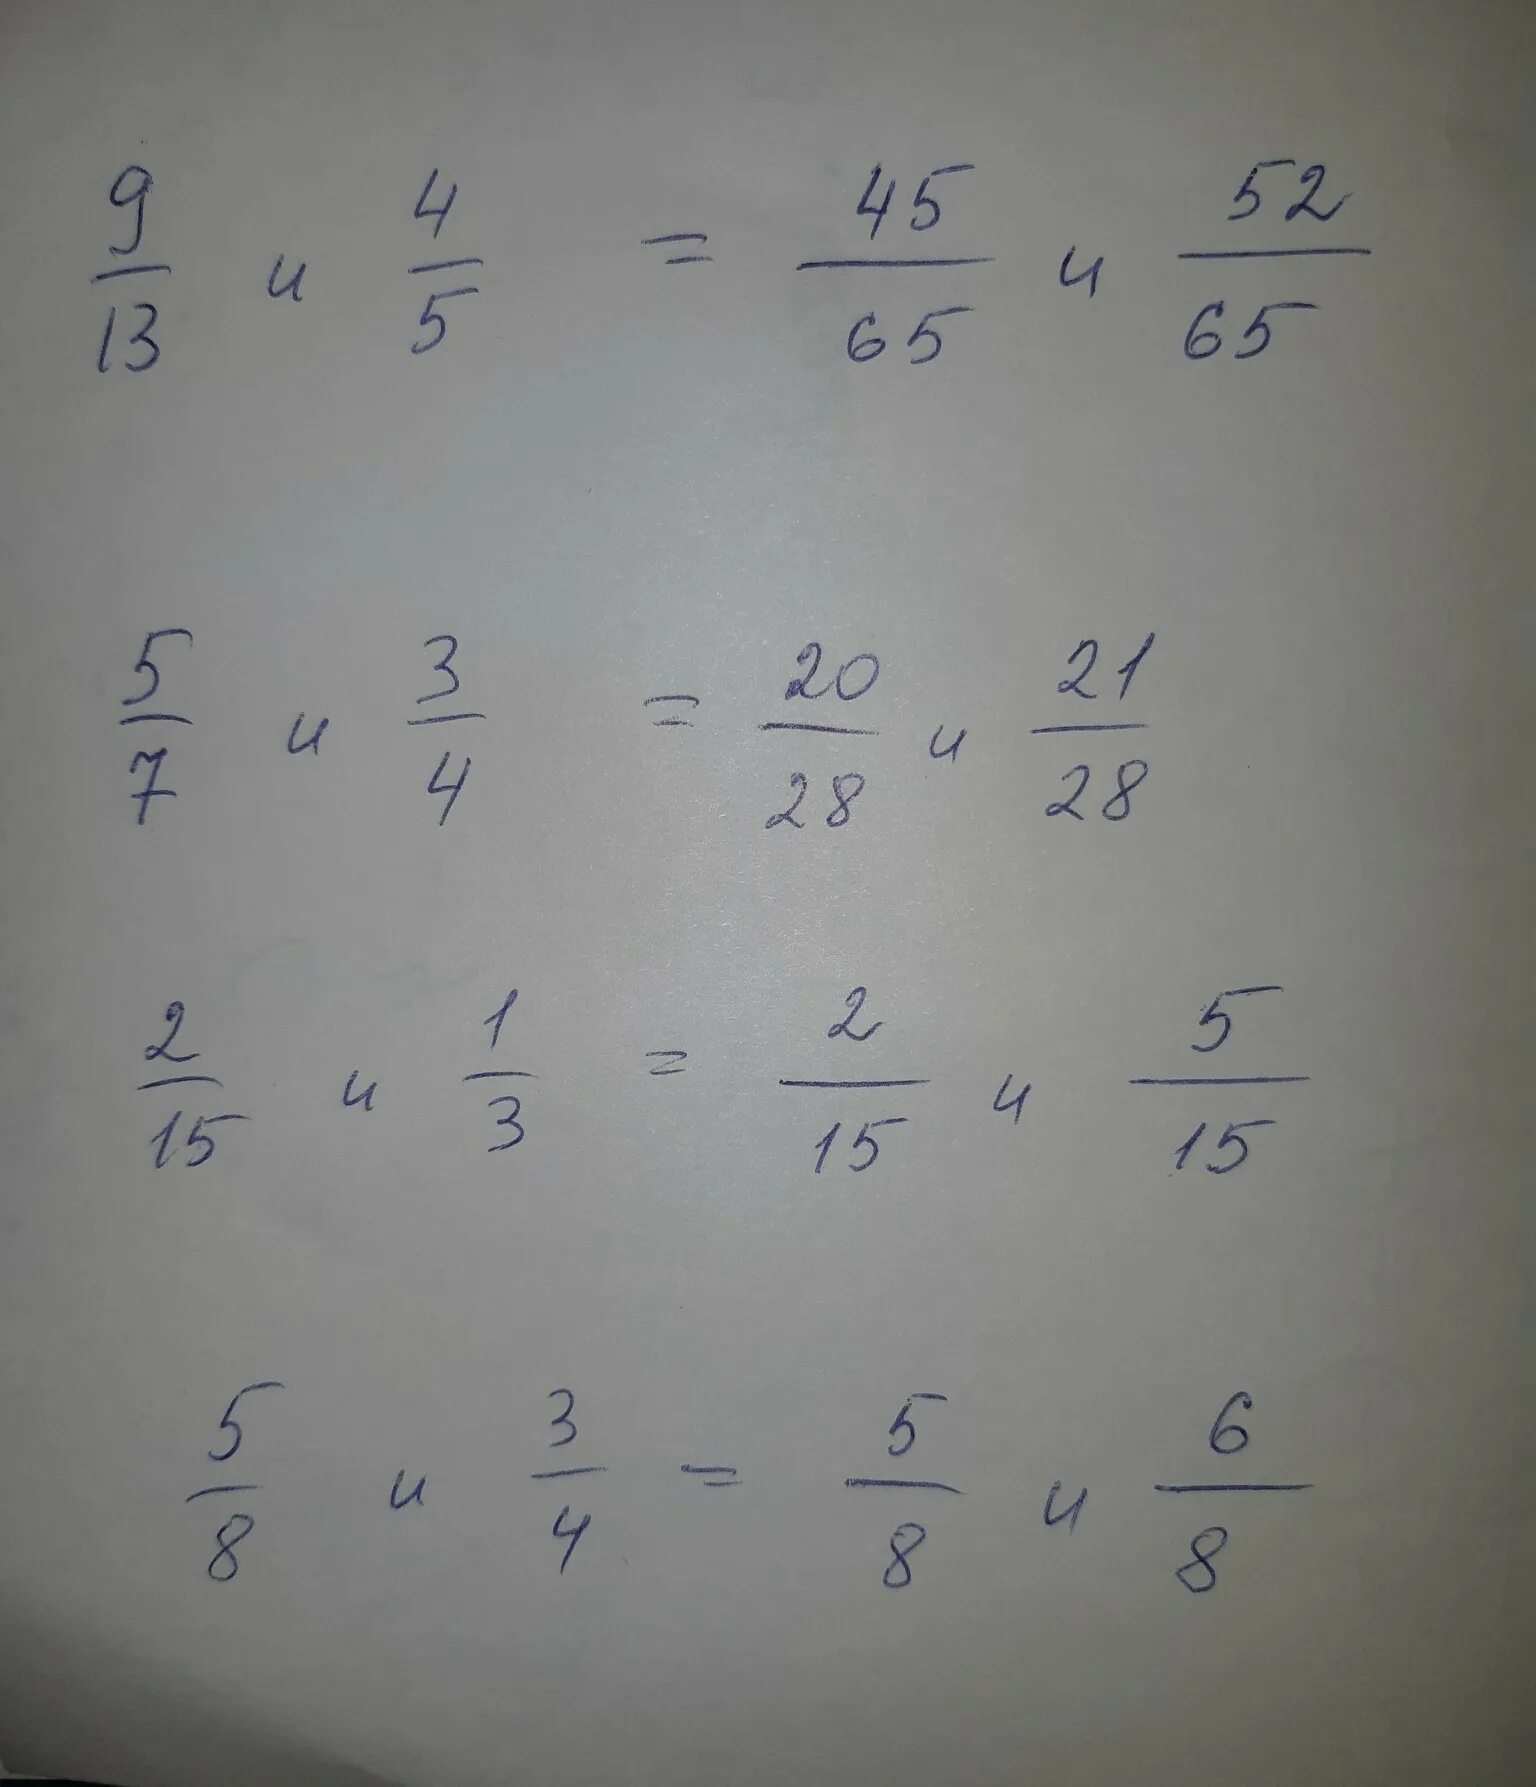 9/13 и 4/5 = 45/65 и 52/65
5/7 и 3/4 = 20/28 и 21/28
2/15 и 1/3 = 2/15 и 5/15
5/8 и 3/4 = 5/8 и 6/8